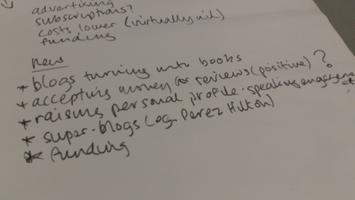 advertising
subscriptions?
costs lower (virtually nil)
funding
new
* blogs turning into books
* accepting money for reviews (positive) ?
* raising personal profile - speaking engagements
* super-blogs (eg. Perez Hilton)
* funding